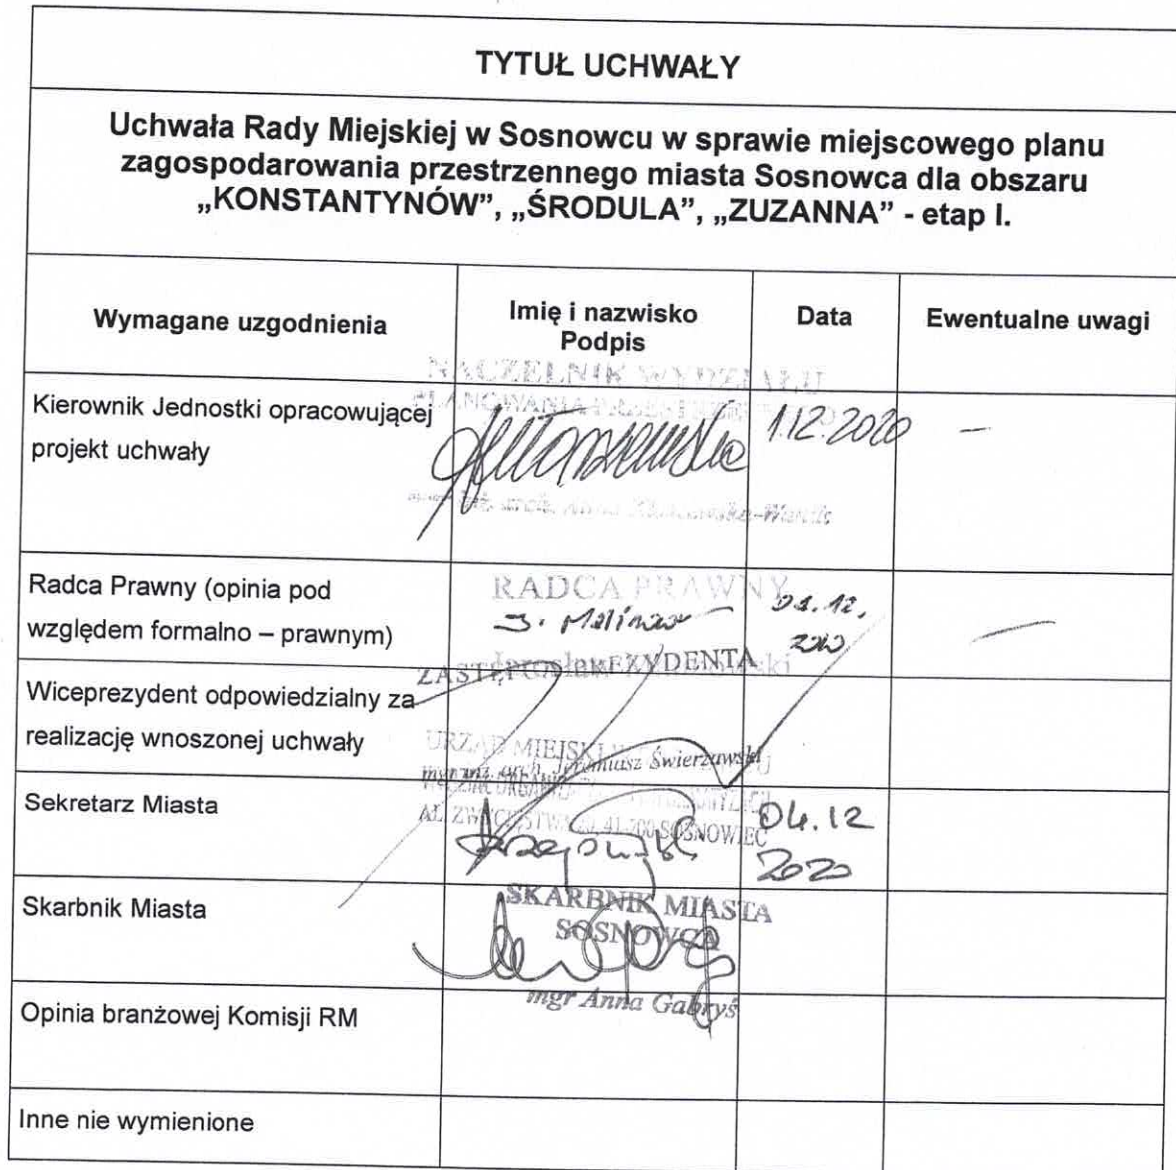 TYTUŁ UCHWAŁY
Uchwała Rady Miejskiej w Sosnowcu w sprawie miejscowego planu
zagospodarowania przestrzennego miasta Sosnowca dla obszaru
„KONSTANTYNÓW”, „ŚRODULA”, „ZUZANNA” - etap I.
Wymagane uzgodnienia
Imię i nazwisko
Podpis
Data
Ewentualne uwagi
NACZELNIK WYDZIAŁU
Kierownik Jednostki opracowującej
projekt uchwały
1.12.2020
–
Radca Prawny (opinia pod
względem formalno – prawnym)
RADCA PRAWNY
J.
Jarosław
01.12.
2020
–
Wiceprezydent odpowiedzialny za
realizację wnoszonej uchwały
ZASTĘPCA PREZYDENTA
mgr inż. arch. Jeremiusz Świerzawski
Sekretarz Miasta
URZĄD MIEJSKI
AL. ZWYCIĘSTWA 20, 41-200 SOSNOWIEC
04.12
2020
Skarbnik Miasta
SKARBNIK MIASTA
SOSNOWCA
mgr Anna Gabryś
Opinia branżowej Komisji RM
Inne nie wymienione